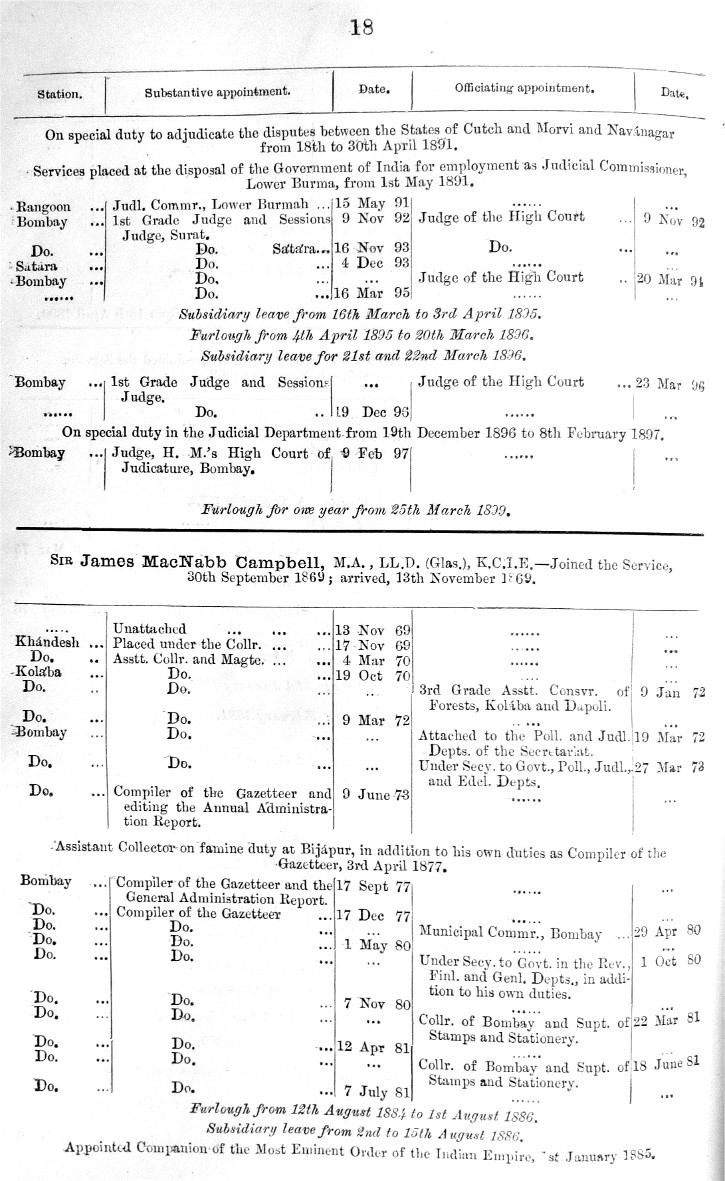 18
Station. Substantive appointment. Date. Officiating appointment. Date.
On special duty to adjudicate the disputes between the States of Cutch and Morvi and Navánagar
from 18th to 30th April 1891.
Services placed at the disposal of the Government of India for employment as Judicial Commissioner,
Lower Burma, from 1st May 1891.
Rangoon ... Judl. Commr., Lower Burmah ... 15 May 91 ...... ...
Bombay ... 1st Grade Judge and Sessions 9 Nov 92 Judge of the High Court ... 9 Nov 92
Judge, Surat.
Do. ... Do. Sátára... 16 Nov 93 Do. ... ...
Satára ... Do. ... 4 Dec 93 ...... ...
Bombay ... Do. ... ... Judge of the High Court .. 20 Mar 94
...... Do. ... 16 Mar 95 ...... ...
Subsidiary leave from 16th March to 3rd April 1895.
Furlough from 4th April 1895 to 20th March 1896.
Subsidiary leave for 21st and 22nd March 1896.
Bombay ... 1st Grade Judge and Sessions ... Judge of the High Court ... 23 Mar 96
Judge.
...... Do. .. 19 Dec 96 ...... ...
On special duty in the Judicial Department from 19th December 1896 to 8th February 1897.
Bombay ... Judge, H. M.'s High Court of 9 Feb 97 ...... ...
Judicature, Bombay.
Furlough for one year from 25th March 1899.
SIR James MacNabb Campbell, M.A., LL.D. (Glas.), K.C.I.E.—Joined the Service,
30th September 1869; arrived, 13th November 1869.
..... Unattached ... ... ... 13 Nov 69 ...... ...
Khándesh ... Placed under the Collr. ... ... 17 Nov 69 ...... ...
Do. .. Asstt. Collr. and Magte. ... ... 4 Mar 70 ...... ...
Kolába ... Do. ... 19 Oct 70 .... ...
Do. .. Do. ... ... 3rd Grade Asstt. Consvr. of 9 Jan 72
Forests, Kolába and Dapoli.
Do. ... Do. ... 9 Mar 72 ..... ...
Bombay ... Do. ... ... Attached to the Poll. and Judl. 19 Mar 72
Depts. of the Secretariat.
Do. ... Do. ... ... Under Secy. to Govt., Poll., Judl., 27 Mar 73
and Edcl. Depts.
Do. ... Compiler of the Gazetteer and 9 June 73 ...... ...
editing the Annual Administra-
tion Report.
Assistant Collector on famine duty at Bijápur, in addition to his own duties as Compiler of the
Gazetteer, 3rd April 1877.
Bombay ... Compiler of the Gazetteer and the 17 Sept 77 ...... ...
General Administration Report.
Do. ... Compiler of the Gazetteer ... 17 Dec 77 ...... ...
Do. ... Do. ... ... Municipal Commr., Bombay ... 29 Apr 80
Do. ... Do. ... 1 May 80 ...... ...
Do. ... Do. ... ... Under Secy. to Govt. in the Rev., 1 Oct 80
Finl. and Genl. Depts., in addi-
tion to his own duties.
Do. ... Do. ... 7 Nov 80 ...... ...
Do. ... Do. ... ... Collr. of Bombay and Supt. of 22 Mar 81
Stamps and Stationery.
Do. ... Do. ... 12 Apr 81 ...... ...
Do. ... Do. ... ... Collr. of Bombay and Supt. of 18 June 81
Stamps and Stationery.
Do. ... Do. ... 7 July 81 ...... ...
Furlough from 12th August 1884 to 1st August 1886.
Subsidiary leave from 2nd to 15th August 1886.
Appointed Companion of the Most Eminent Order of the Indian Empire, 1st January 1885.